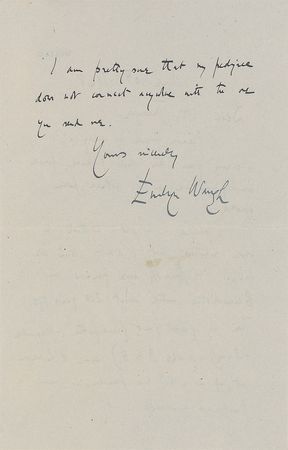 I am pretty sure that my pedigree
does not connect anywhere with the one
you send me.
Yours sincerely
Evelyn Waugh